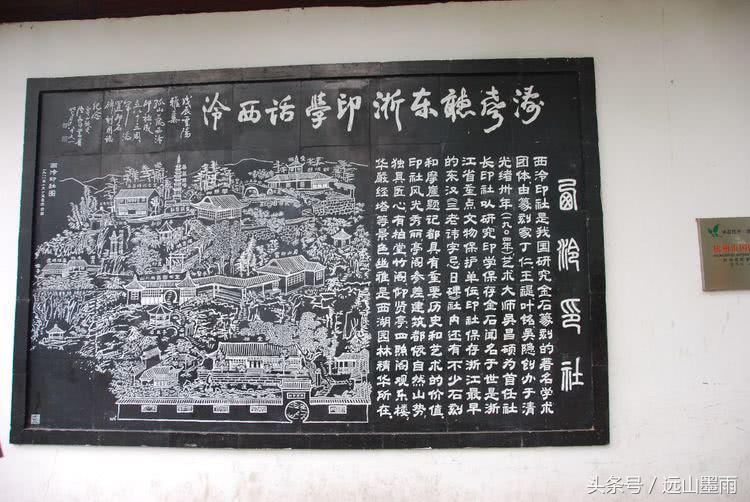 涛声聽东浙印學话西泠
西泠印社
西泠印社是我国研究金石篆刻的著名学术
团体由篆刻家丁仁王禔叶铭吴隐创办于清
光绪卅年(一九〇四年)艺术大师吴昌硕为首任社
长印社以研究印学保存金石闻名于世是浙
江省重点文物保护单位印社保存浙江最早
的东汉三老讳字忌日碑社内还有不少石刻
和摩崖题记都具有重要历史和艺术的价值
印社风光秀丽亭阁参差建筑都依自然山势
独具匠心有柏堂竹阁仰贤亭四照阁观乐楼
华严经塔等景色幽雅是西湖园林精华所在
戊辰重阳
雅集
孤山为西泠
印社成
纪念
西泠印社图
头条号 / 远山墨雨